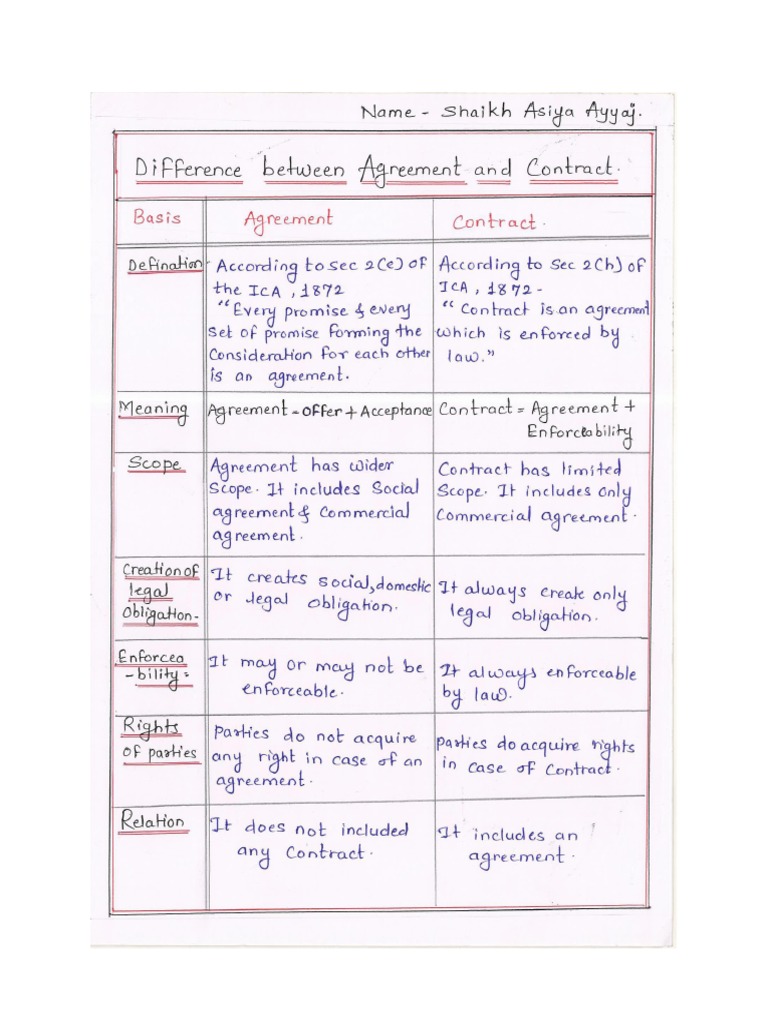 Name - Shaikh Asiya Ayyaj.
Difference between Agreement and Contract.
Basis Agreement Contract.
Defination - According to sec 2(e) of
the ICA, 1872
"Every promise & every
set of promise forming the
Consideration for each other
is an agreement.
According to Sec 2(h) of
ICA, 1872 -
"Contract is an agreement
which is enforced by
law."
Meaning
Agreement = Offer + Acceptance
Contract = Agreement +
Enforceability
Scope
Agreement has wider
Scope. It includes Social
agreement & Commercial
agreement.
Contract has limited
Scope. It includes only
Commercial agreement.
Creation of
legal
Obligation -
It creates social, domestic
or legal obligation.
It always create only
legal obligation.
Enforcea
-bility =
It may or may not be
enforceable.
It always enforceable
by law.
Rights
of parties
Parties do not acquire
any right in case of an
agreement.
Parties do acquire rights
in case of Contract.
Relation
It does not included
any Contract.
It includes an
agreement.